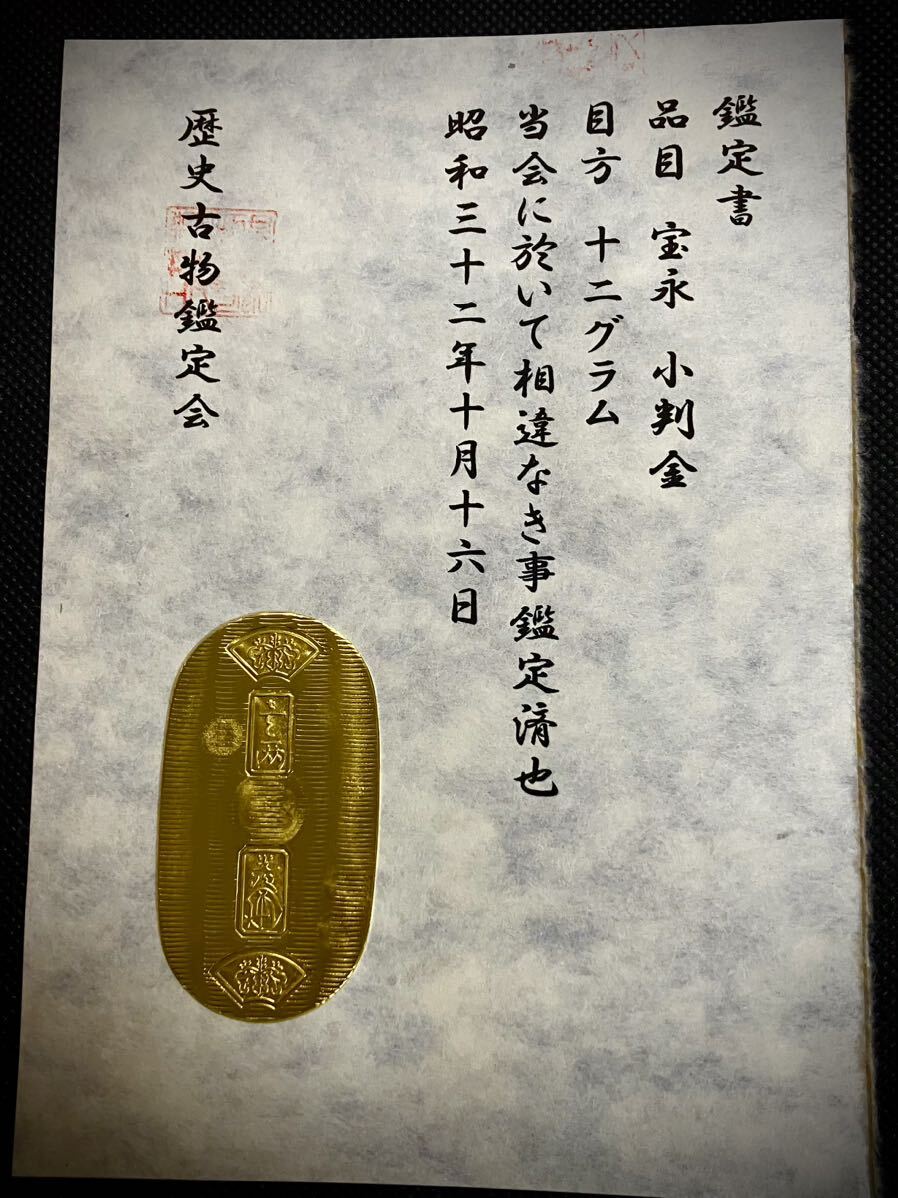 鑑定書
品目 宝永 小判金
目方 十二グラム
当会に於いて相違なき事鑑定済也
昭和三十二年十月十六日
歴史古物鑑定会
壹两